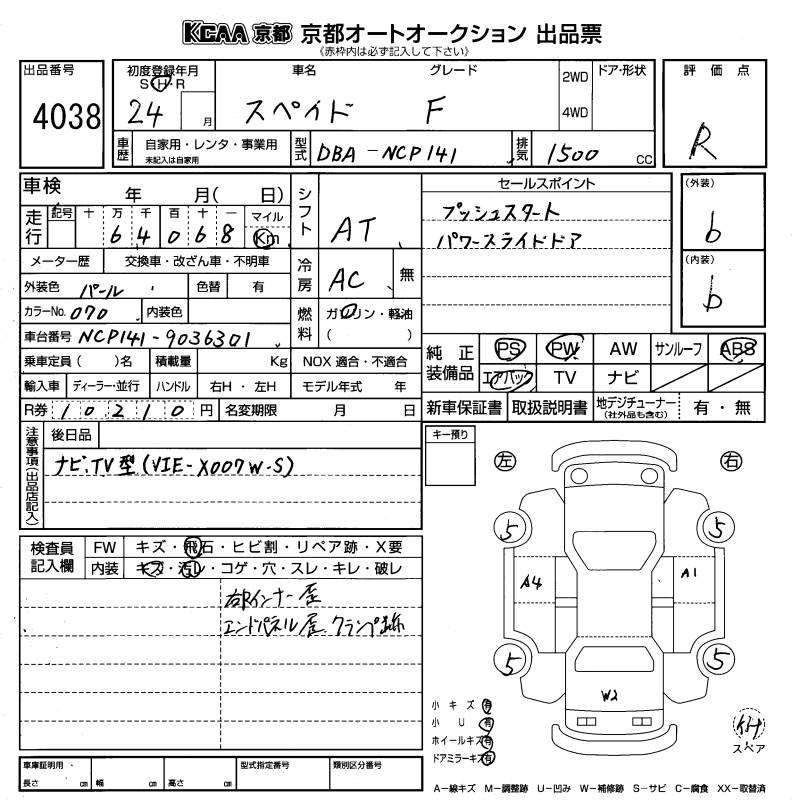 KCAA 京都 京都オートオークション 出品票
《赤枠内は必ず記入して下さい》
出品番号 4038
初度登録年月 S・H・R 24 月
車名 スペイド
グレード F
2WD 4WD
ドア・形状
評価点 R
車歴 自家用・レンタ・事業用 未記入は自家用
型式 DBA-NCP141
排気 1500 CC
車検 年 月( 日)
走行 記号 十 万 千 百 十 一 マイル Km
6 4 0 6 8
シフト AT
セールスポイント
プッシュスタート
パワースライドドア
(外装) b
(内装) b
メーター歴 交換車・改ざん車・不明車
冷房 AC 無
外装色 パール 色替 有
カラーNo. 070 内装色
燃料 ガソリン・軽油 ( )
車台番号 NCP141-9036301
乗車定員( )名 積載量 Kg NOX 適合・不適合
輸入車 ディーラー・並行 ハンドル 右H・左H モデル年式 年
R券 10210円 名変期限 月 日
純正装備品 PS PW AW サンルーフ ABS
エアバック TV ナビ
新車保証書 取扱説明書 地デジチューナー(社外品も含む) 有・無
注意事項(出品店記入) 後日品
ナビ、TV型(VIE-X007W-S)
キー預り
左 右
検査員記入欄 FW キズ・飛石・ヒビ割・リペア跡・X要
内装 キズ・汚レ・コゲ・穴・スレ・キレ・破レ
右Rインナー歪
エンドパネル歪 クランプ跡
5 5
A4 A1
5 5
W2
小キズ 有
小U 有
ホイールキズ 有
ドアミラーキズ 有
スペア
車庫証明用・長さ cm 幅 cm 高さ cm 型式指定番号 類別区分番号
A-線キズ M-調整跡 U-凹み W-補修跡 S-サビ C-腐食 XX-取替済